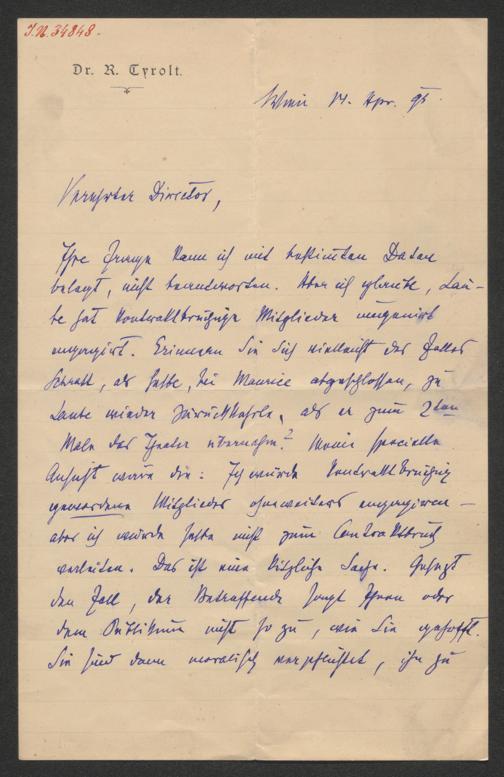 J.N. 34848.
Dr. R. Tyrolt.
Wien 14. Apr. 95.
Verehrter Director,
Ihre Frage kann ich mit bestimten Daten
belegt, nicht beantworten. Aber ich glaube, Lau-
be hat kontraktbrüchige Mitglieder
engagirt. Erinnern Sie Sich vielleicht des Falles
Schratt, als selbe, bei Maurice abgeschlossen, zu
Laube wieder zurückkehrte, als er zum 2ten
Male das Theater übernahm? Meine specielle
Ansicht wäre die: Ich würde kontraktbrüchig
gewordene Mitglieder ohneweiters engagiren –
aber ich würde selbe nicht zum Contraktbruch
verleiten. Das ist eine kitzliche Sache. Gesetzt
den Fall, der Betreffende sagt Ihnen oder
dem Publikum nicht so zu, wie Sie gehofft.
Sie sind dann moralisch verpflichtet, ihn zu